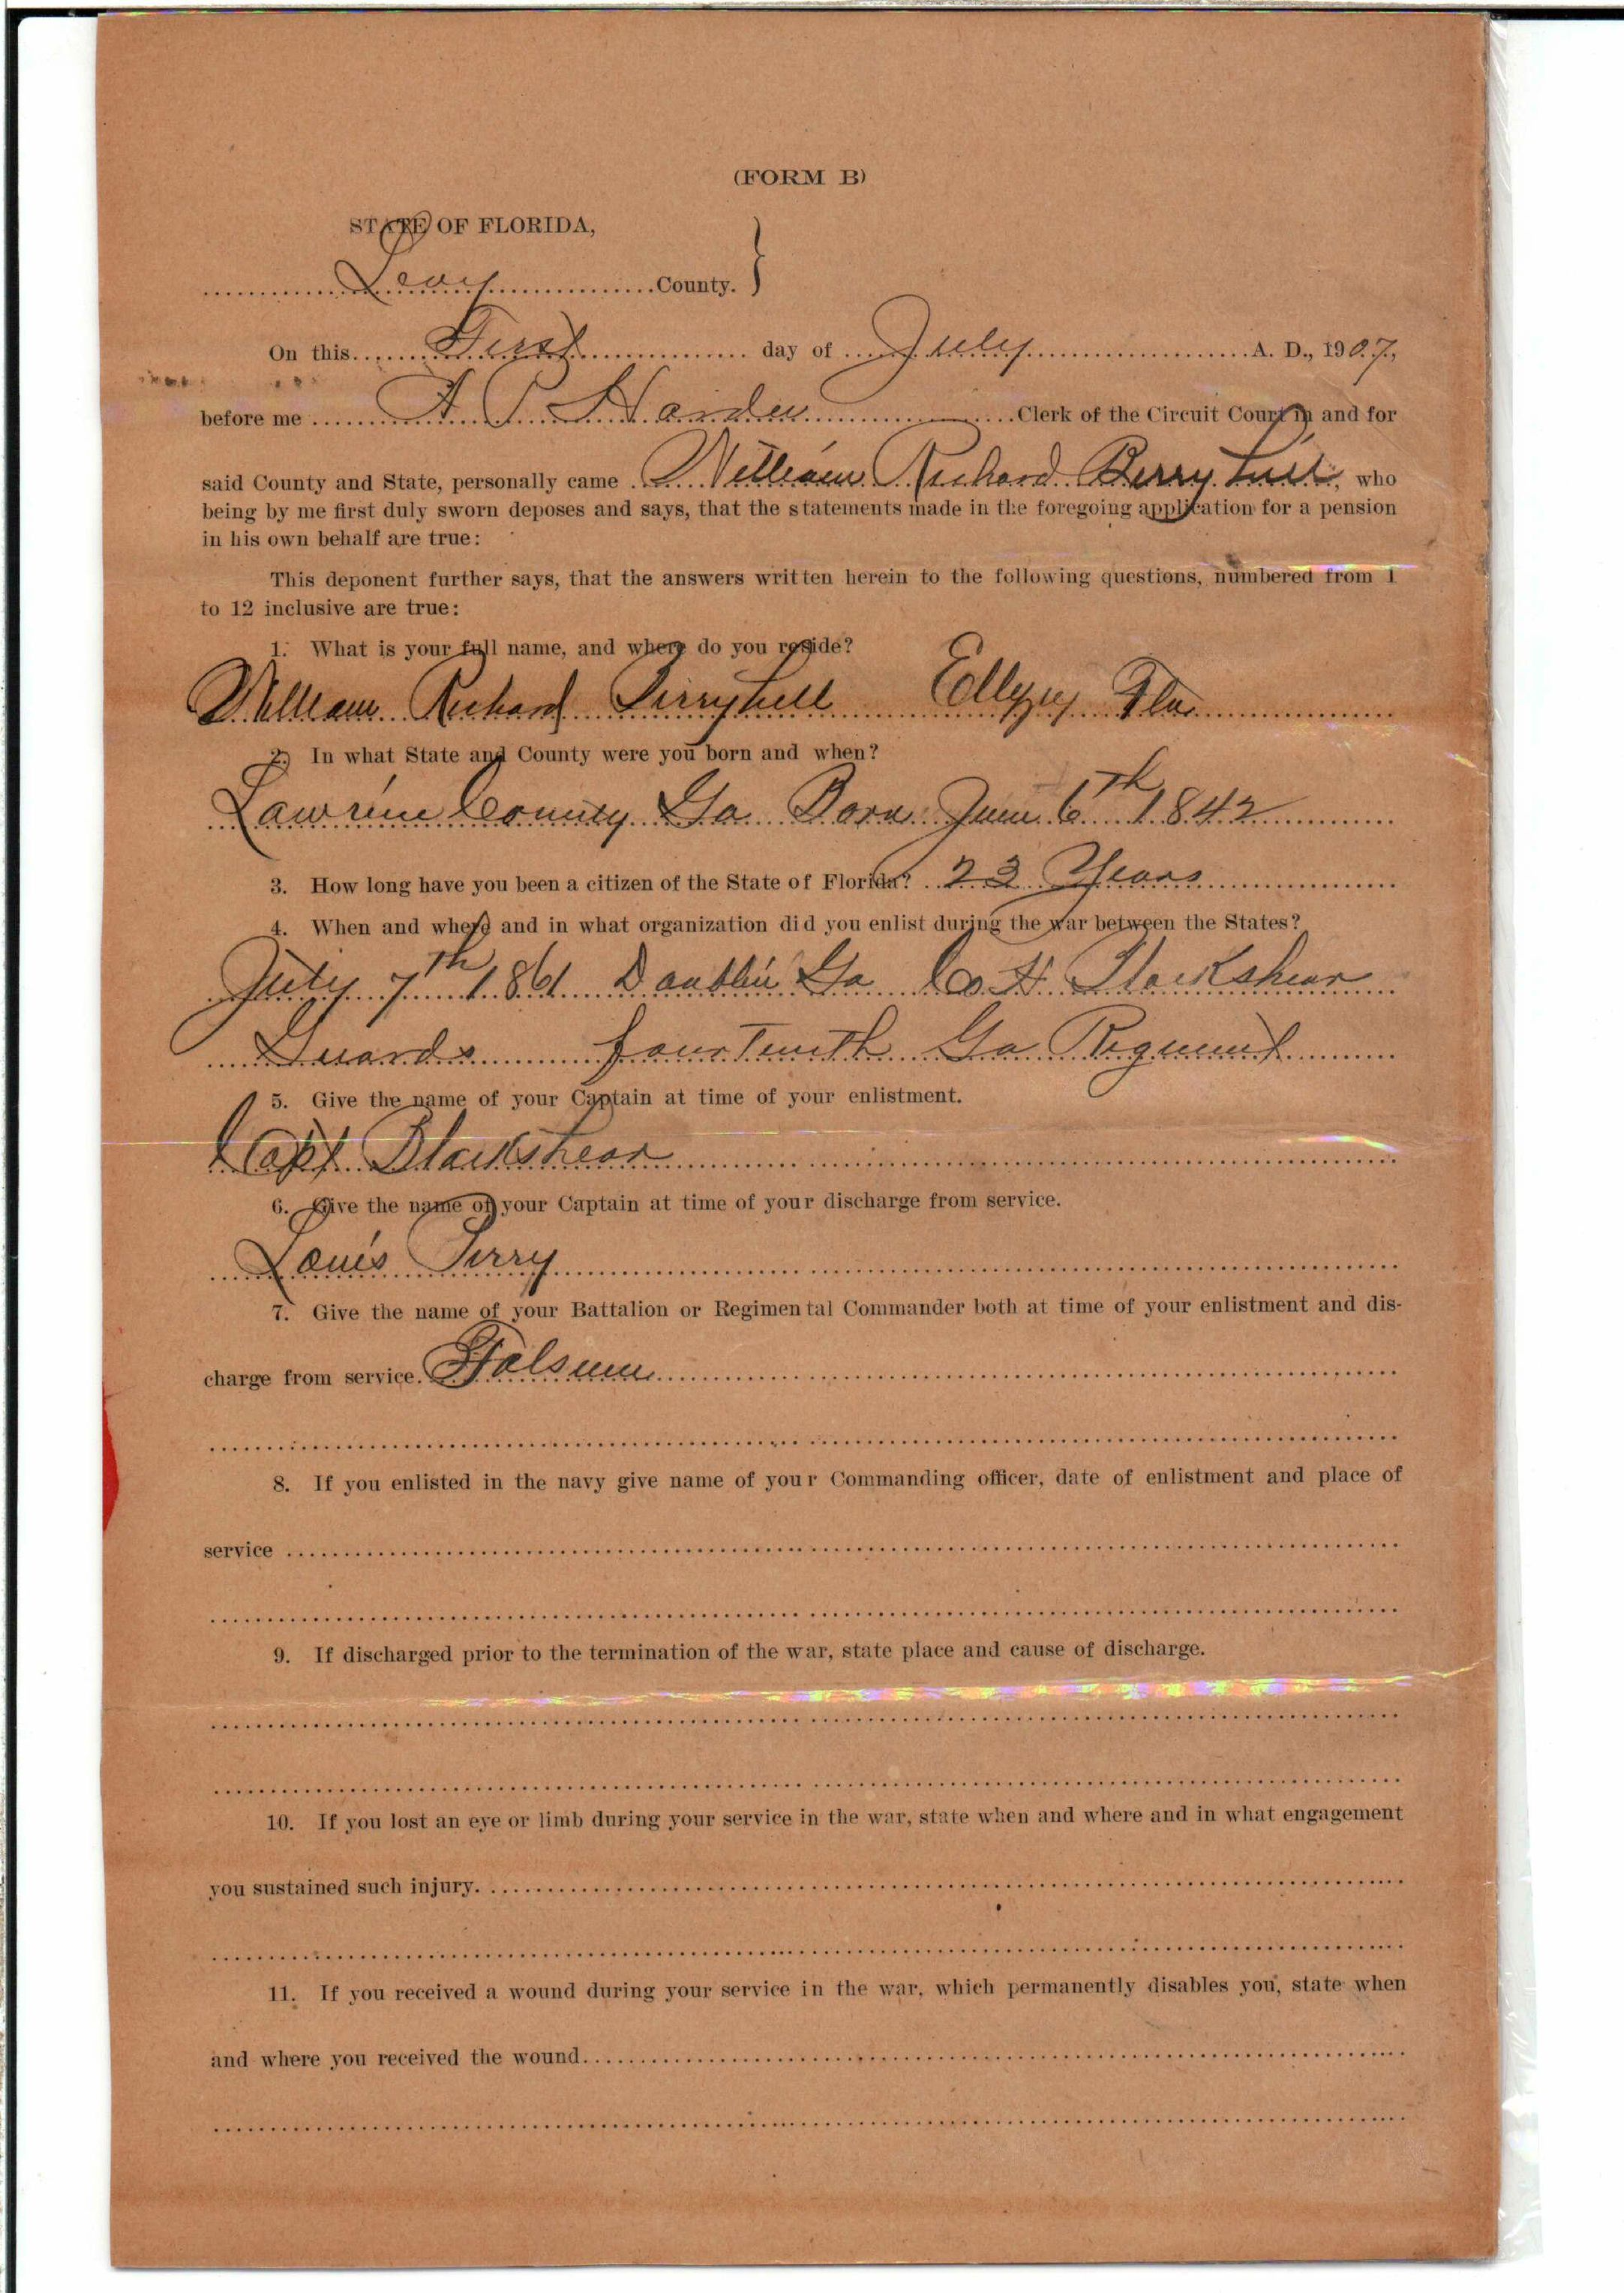 (FORM B)
STATE OF FLORIDA,
Levy County.
On this First day of July A. D., 1907,
before me A. P. Hardee Clerk of the Circuit Court in and for
said County and State, personally came William Richard Berryhill, who
being by me first duly sworn deposes and says, that the statements made in the foregoing application for a pension
in his own behalf are true:
This deponent further says, that the answers written herein to the following questions, numbered from 1
to 12 inclusive are true:
1. What is your full name, and where do you reside?
William Richard Berryhill Fla
2. In what State and County were you born and when?
County Ga Born June 6th 1842
3. How long have you been a citizen of the State of Florida? 23 Years
4. When and where and in what organization did you enlist during the war between the States?
July 7th 1861 Ga Co H Blackshear
Guards fourteenth Ga Regiment
5. Give the name of your Captain at time of your enlistment.
Capt Blackshear
6. Give the name of your Captain at time of your discharge from service.
Louis Perry
7. Give the name of your Battalion or Regimental Commander both at time of your enlistment and dis-
charge from service. Folsum
8. If you enlisted in the navy give name of your Commanding officer, date of enlistment and place of
service
9. If discharged prior to the termination of the war, state place and cause of discharge.
10. If you lost an eye or limb during your service in the war, state when and where and in what engagement
you sustained such injury.
11. If you received a wound during your service in the war, which permanently disables you, state when
and where you received the wound.